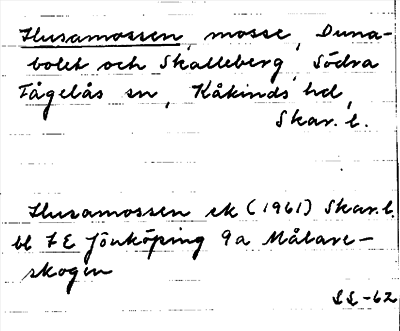 Husamossen, mosse, Duna-
bolet och Skalleberg, Södra
Fågelås sn, Kåkinds hd,
Skar. l.
Husamossen ek (1961) Skar. l.
bl 7E Jönköping 9a Målare-
skogen
LL-62